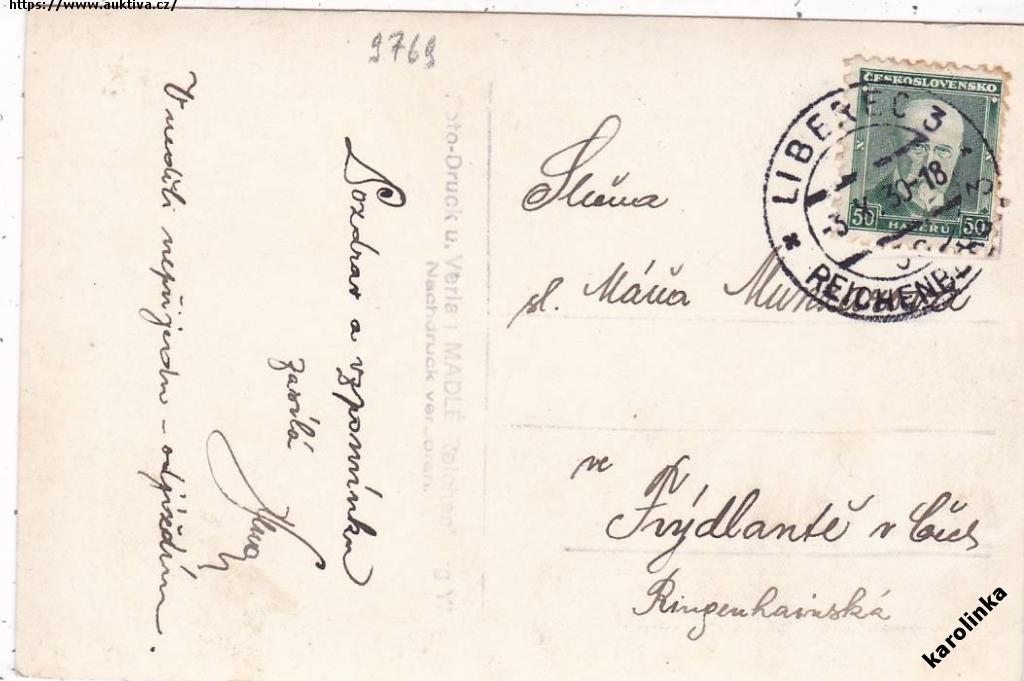 https://www.auktiva.cz/
9769
Pozdrav a vzpomínku
zasílá
V neděli nepřijedu – odjíždím.
Foto-Druck u. Verla MADLÉ Reichen
Nachdruck verboten.
ČESKOSLOVENSKO
50 HALÉŘŮ 50
LIBEREC 3
30-18
REICHENB
Slečna
sl. Máňa
ve
Frýdlantě v Čech
Ringenhainská
karolinka